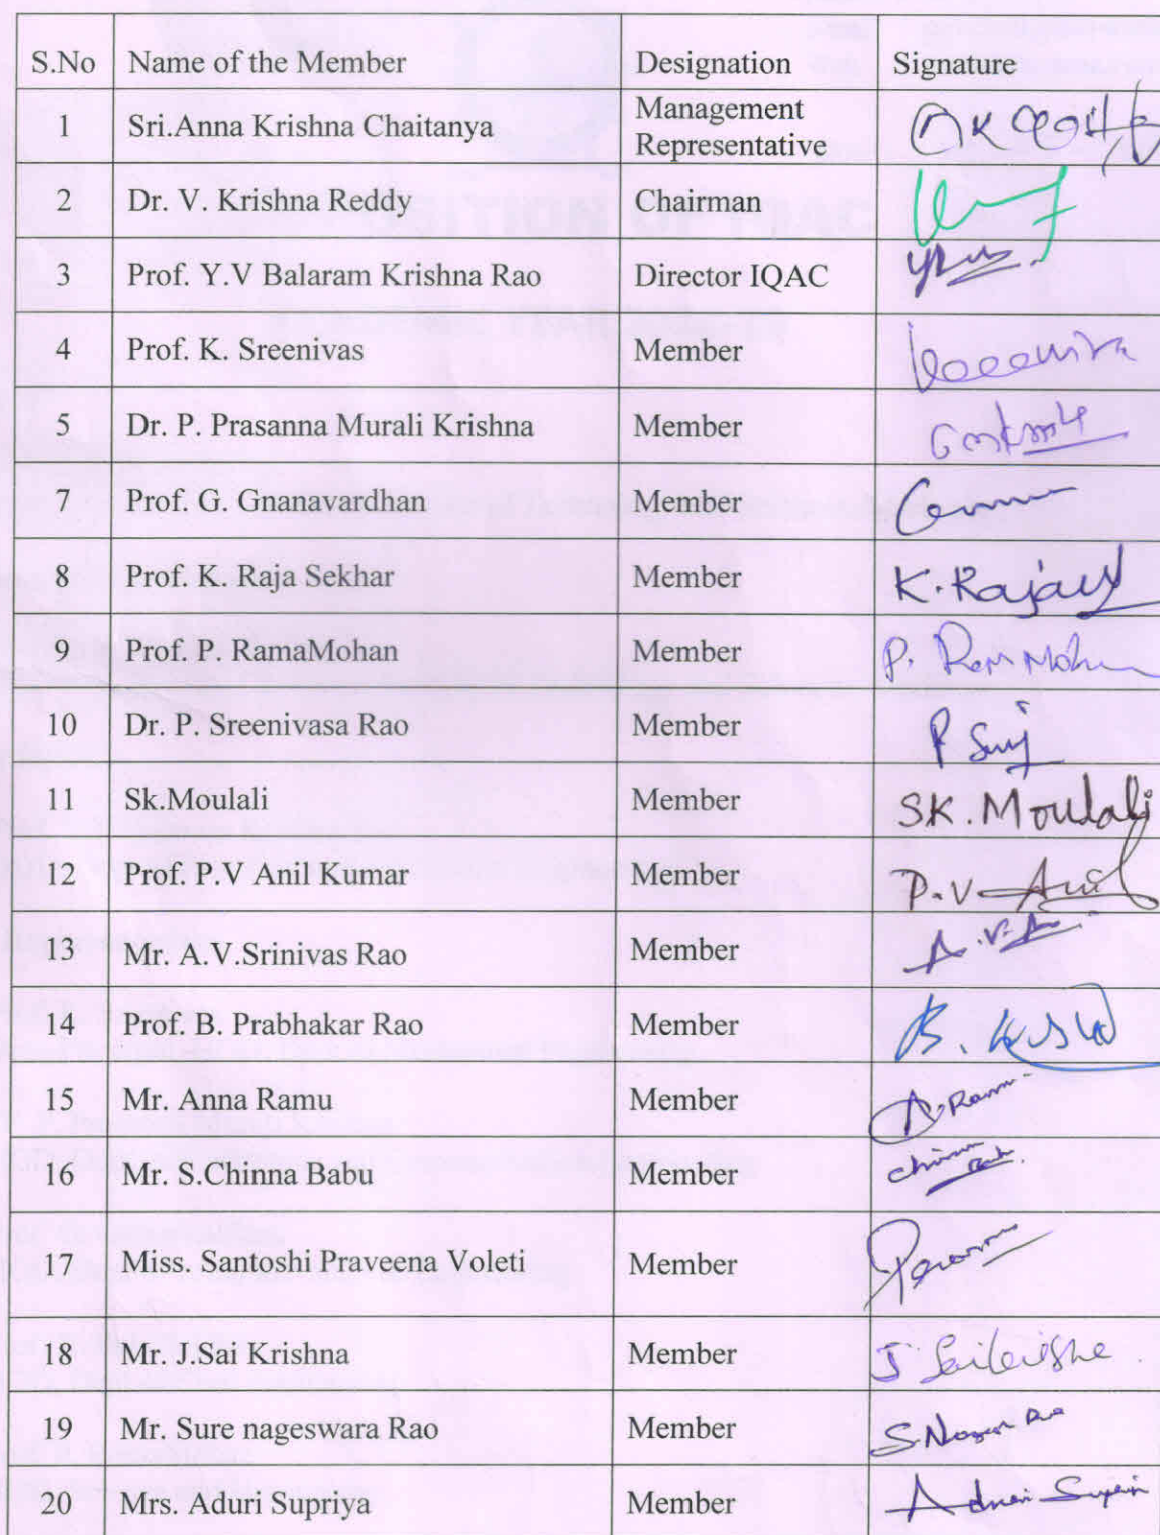 S.No Name of the Member Designation Signature
1 Sri.Anna Krishna Chaitanya Management
Representative
2 Dr. V. Krishna Reddy Chairman
3 Prof. Y.V Balaram Krishna Rao Director IQAC
4 Prof. K. Sreenivas Member
5 Dr. P. Prasanna Murali Krishna Member
7 Prof. G. Gnanavardhan Member
8 Prof. K. Raja Sekhar Member
9 Prof. P. RamaMohan Member P. Ram Mohan
10 Dr. P. Sreenivasa Rao Member
11 Sk.Moulali Member SK. Moulali
12 Prof. P.V Anil Kumar Member P.V. Anil
13 Mr. A.V.Srinivas Rao Member
14 Prof. B. Prabhakar Rao Member
15 Mr. Anna Ramu Member A. Ramu
16 Mr. S.Chinna Babu Member
17 Miss. Santoshi Praveena Voleti Member
18 Mr. J.Sai Krishna Member
19 Mr. Sure nageswara Rao Member
20 Mrs. Aduri Supriya Member